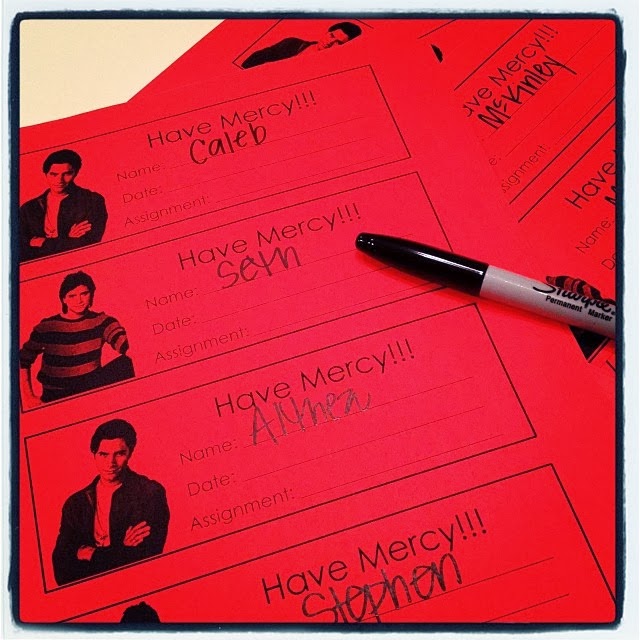 Have Mercy!!!
Name: Caleb
Date:
Assignment:
Have Mercy!!!
Name: Seth
Date:
Assignment:
Have Mercy!!!
Name: Althea
Date:
Assignment:
Have Mercy!!!
Stephen
ave Mercy!!!
McKinley
Assignment:
Have
Name:
Date:
Sharpie
Permanent Marker